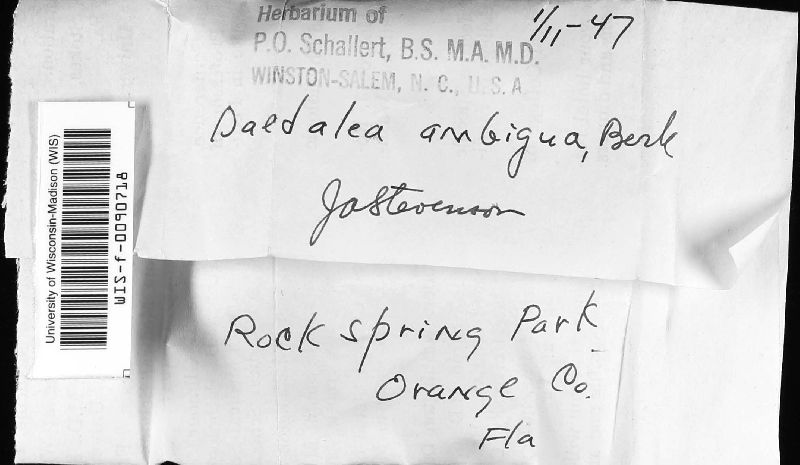 Herbarium of
1/11-47
P.O. Schallert, B.S. M.A. M.D.
WINSTON-SALEM, N. C., U.S.A.
Daedalea ambigua, Berk
JAStevenson
Rock spring Park
Orange Co.
Fla
University of Wisconsin-Madison (WIS)
WIS-f-0090718